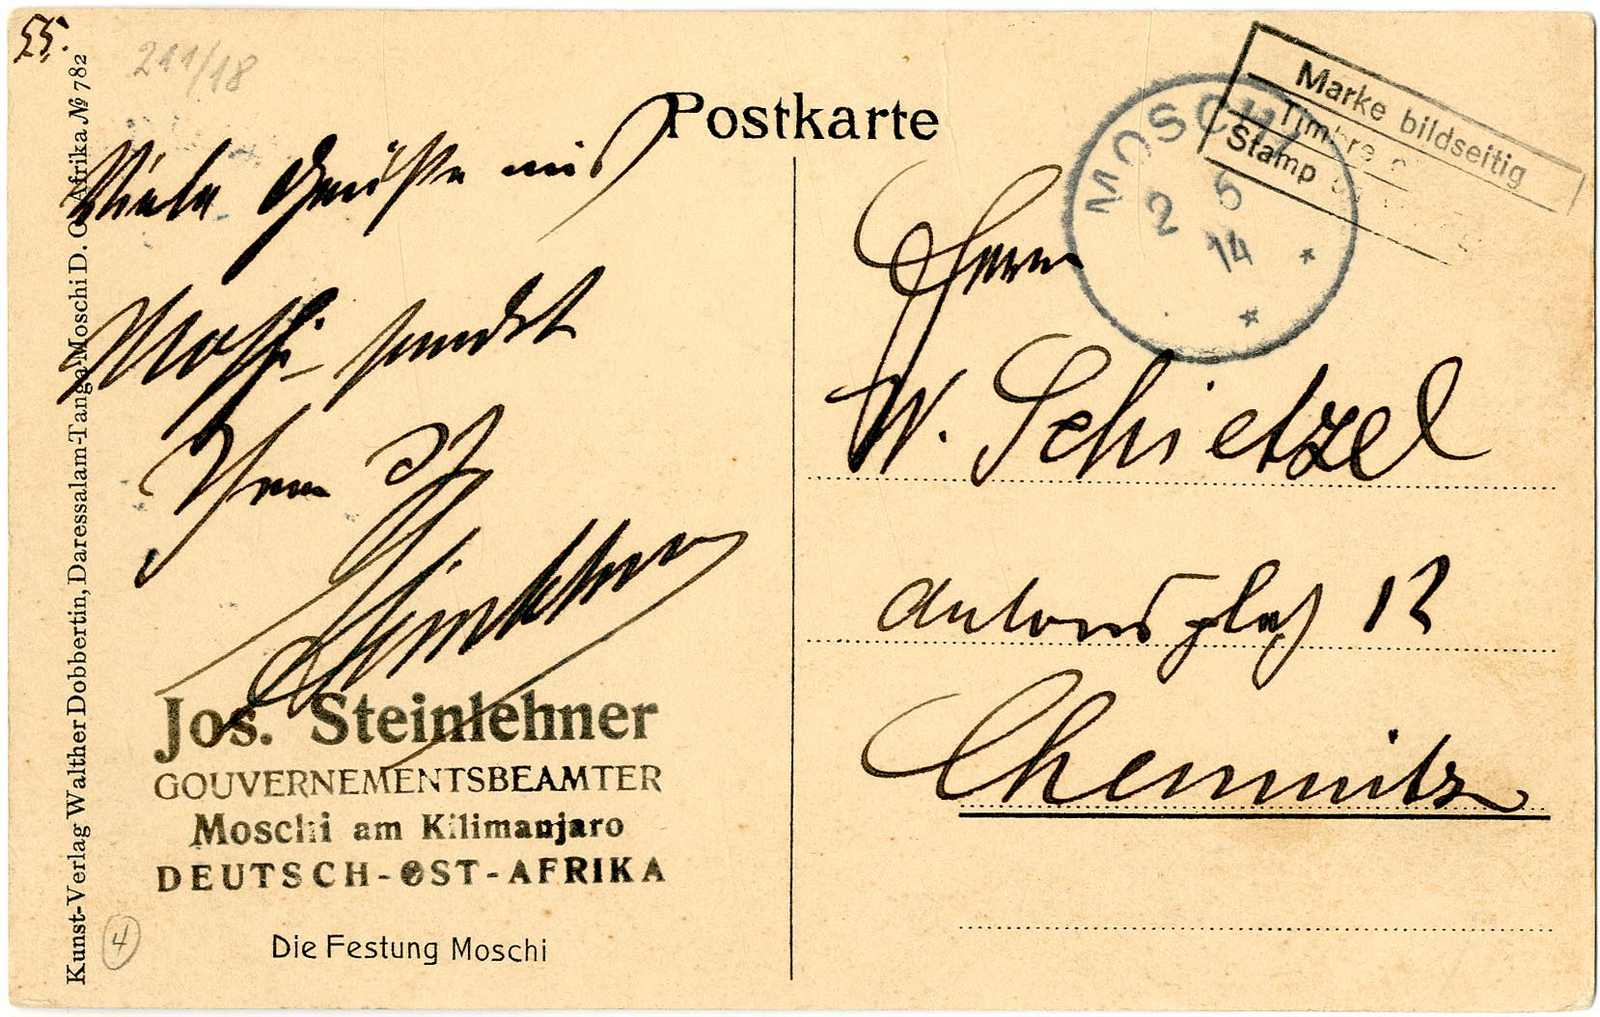 55.
211/18
Postkarte
Marke bildseitig
Timbre
Stamp
MOSCHI
2 6
14
Viele Grüße aus
Moschi sendet
Ihnen Ihr
Steinlehner
Jos. Steinlehner
GOUVERNEMENTSBEAMTER
Moschi am Kilimanjaro
DEUTSCH-OST-AFRIKA
Die Festung Moschi
4
Kunst-Verlag Walther Dobbertin, Daressalam-Tanga-Moschi D. O. Afrika № 782
Herrn
W. Schietzel
Antonsplatz 12
Chemnitz